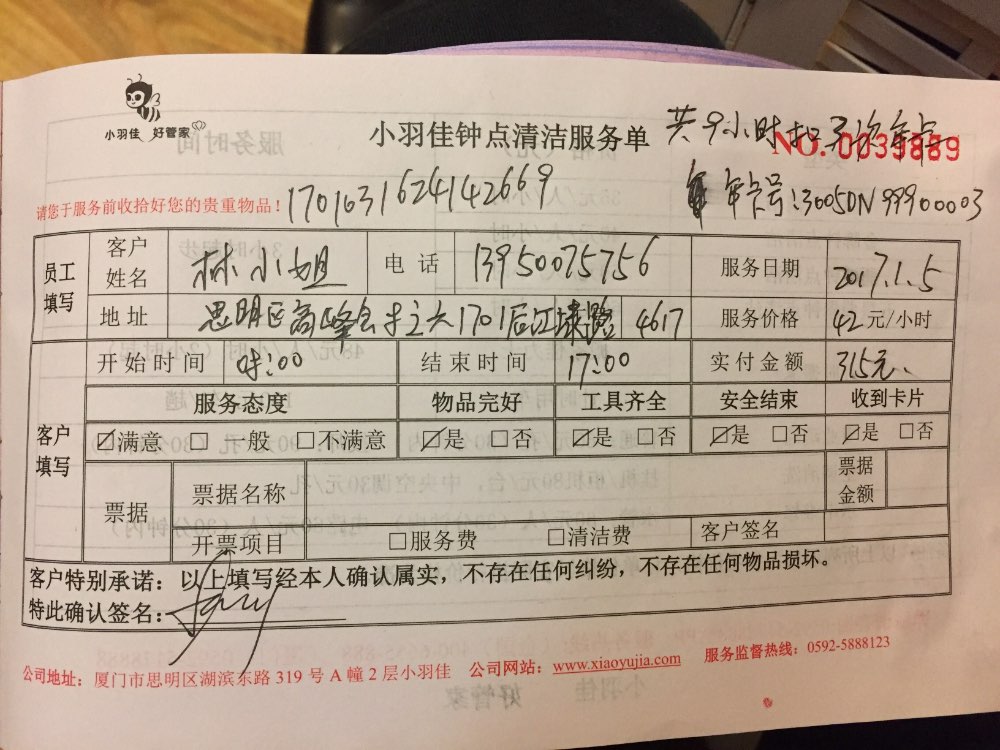 小羽佳 好管家
小羽佳钟点清洁服务单 共9小时扣 年卡
NO. 0039889
请您于服务前收拾好您的贵重物品! 1701631624142669 年卡号:3005DN99900003
员工填写 客户姓名 林小姐 电话 13950075756 服务日期 2017.1.5
地址 思明区高峰会 1701后江埭路 4617 服务价格 42元/小时
客户填写 开始时间 :00 结束时间 17:00 实付金额 315元.
服务态度 物品完好 工具齐全 安全结束 收到卡片
☑满意 □一般 □不满意 ☑是 □否 ☑是 □否 ☑是 □否 ☑是 □否
票据 票据名称 票据金额
开票项目 □服务费 □清洁费 客户签名
客户特别承诺:以上填写经本人确认属实,不存在任何纠纷,不存在任何物品损坏。
特此确认签名:
公司地址:厦门市思明区湖滨东路 319 号 A 幢 2 层小羽佳 公司网站:www.xiaoyujia.com 服务监督热线:0592-5888123